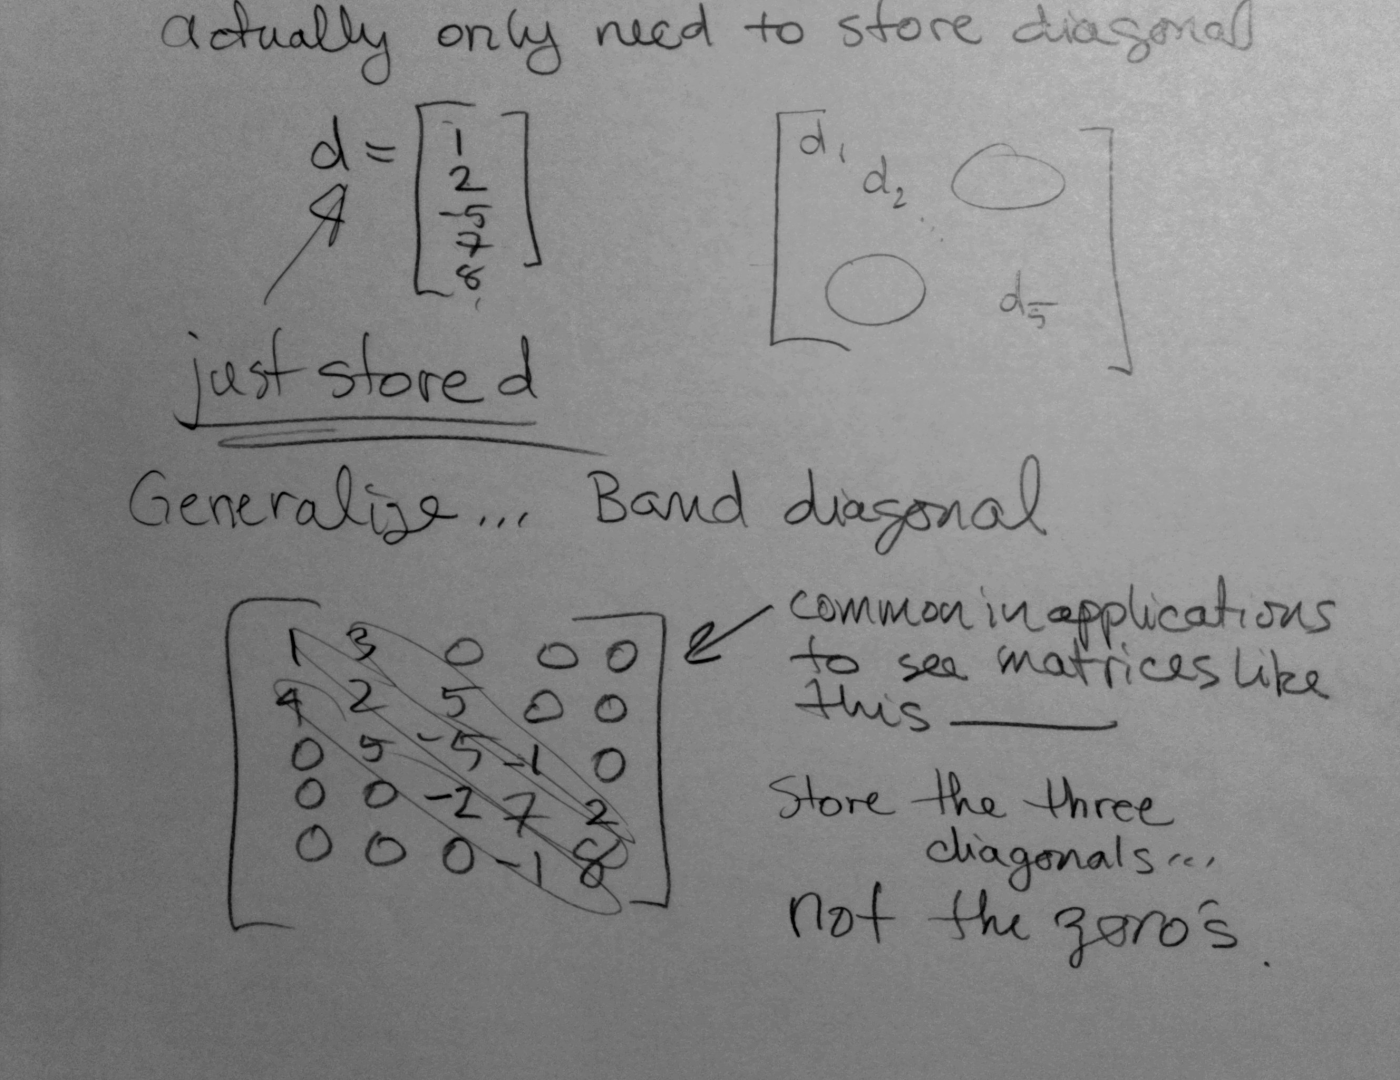 actually only need to store diagonal
d = [1
2
-5
7
8]
[d1
d2
d5]
just store d
Generalize... Band diagonal
1 3 0 0 0
4 2 5 0 0
0 5 -5 -1 0
0 0 -2 7 2
0 0 0 -1 8
common in applications
to see matrices like
this
Store the three
diagonals...
not the zero's.